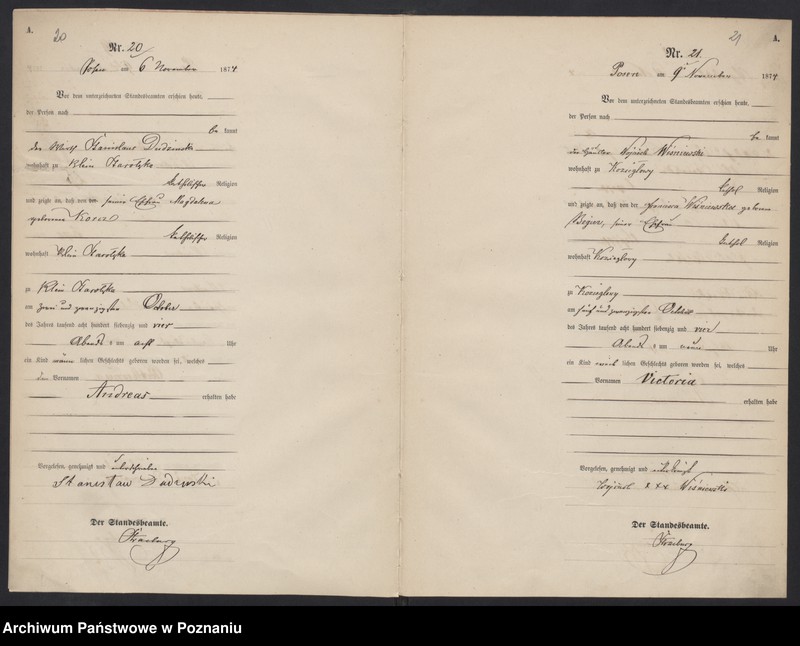 A.
20
Nr. 20
Posen am 6 November 1874
Vor dem unterzeichneten Standesbeamten erschien heute,
der Person nach
be kannt
der Stanislaus
wohnhaft zu Klein
katholischer Religion
und zeigte an, daß von seiner Ehefrau Magdalena
geborene
katholischer Religion
wohnhaft Klein
zu Klein
am zwei und zwanzigsten October
des Jahres tausend acht hundert siebenzig und vier
Abends um acht Uhr
ein Kind männlichen Geschlechts geboren worden sei, welches
den Vornamen
Andreas erhalten habe
Vorgelesen, genehmigt und unterschrieben
Stanisław
Der Standesbeamte.
21
A.
Nr. 21.
Posen am 9 November 1874
Vor dem unterzeichneten Standesbeamten erschien heute,
der Person nach
be kannt
der Wiśniewski
wohnhaft zu Koziegłowy
kathol Religion
und zeigte an, daß von der Wiśniewska geboren
seiner Ehefrau
kathol Religion
wohnhaft Koziegłowy
zu Koziegłowy
am fünf und zwanzigsten October
des Jahres tausend acht hundert siebenzig und vier
Abends um neun Uhr
ein Kind weiblichen Geschlechts geboren worden sei, welches
Vornamen Victoria
erhalten habe
Vorgelesen, genehmigt und
xxx Wiśniewski
Der Standesbeamte.
Archiwum Państwowe w Poznaniu